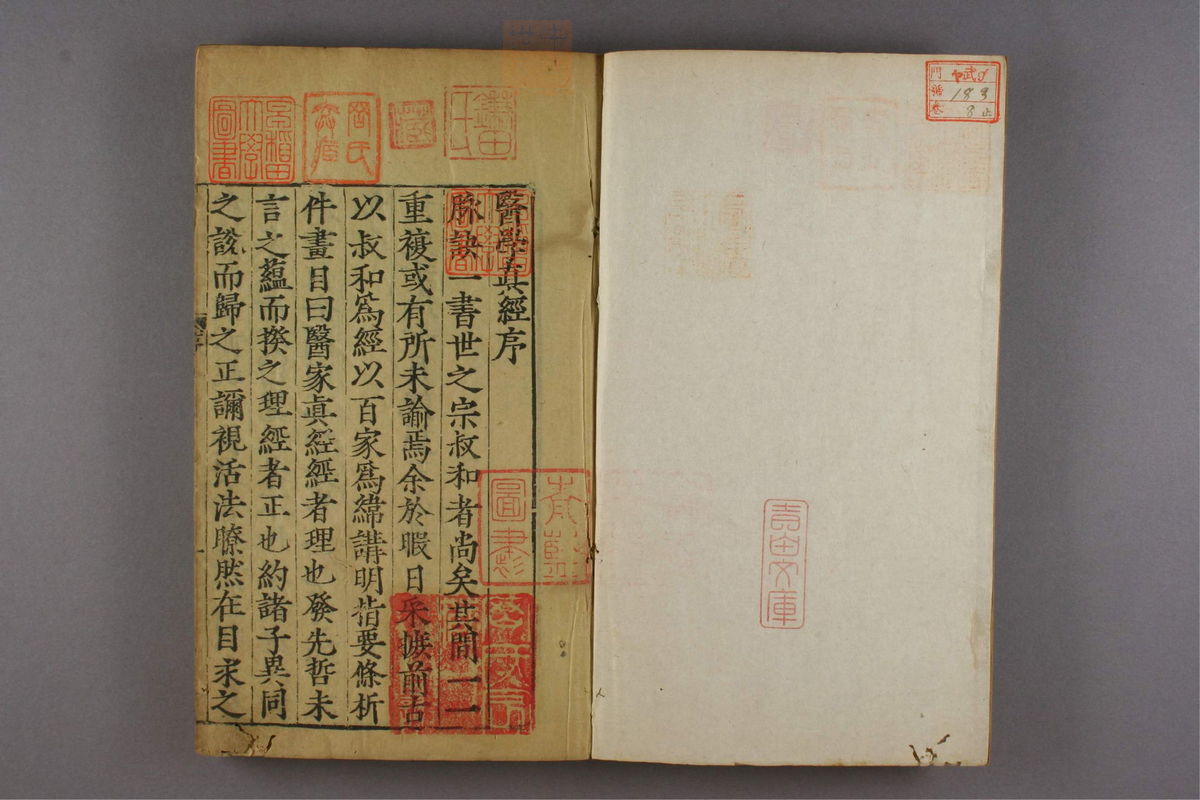 門
號 183
卷 8止
袁田文庫
醫學眞經序
脉訣一書世之宗叔和者尚矣其間一二
重複或有所未諭焉余於暇日采摭前古
以叔和爲經以百家爲緯講明指要條析
件畫目曰醫家眞經經者理也發先哲未
言之蘊而揆之理經者正也約諸子異同
之說而歸之正謂視活法瞭然在目求之
圖書